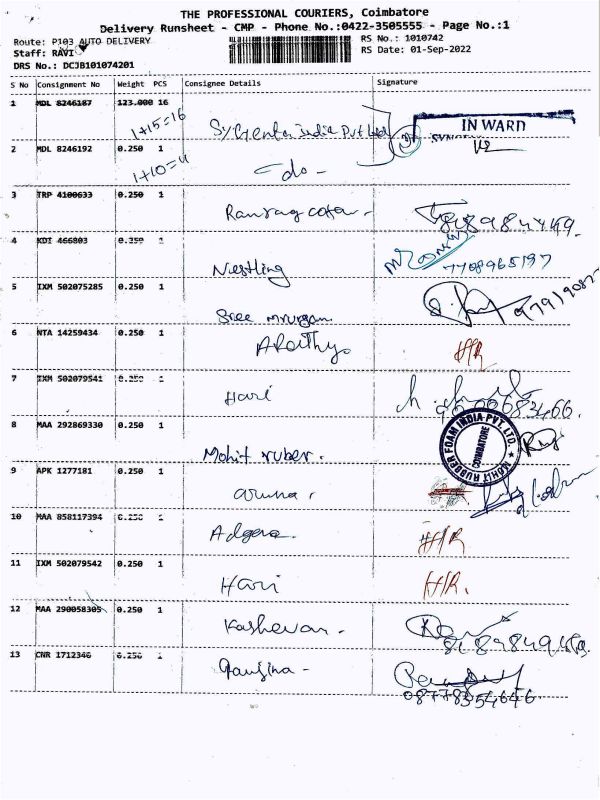 THE PROFESSIONAL COURIERS, Coimbatore
Delivery Runsheet - CMP - Phone No.:0422-3505555 - Page No.:1
Route: P103 AUTO DELIVERY RS No.: 1010742
Staff: RAVI RS Date: 01-Sep-2022
DRS No.: DCJB101074201
S No Consignment No Weight PCS Consignee Details Signature
1 MDL 8246187 123.000 16
1+15=16
India Pvt Ltd
IN WARD
2 MDL 8246192 0.250 1
- do -
3 TRP 4100633 0.250 1
4 KDI 466803 0.250 1
Nestling 7708965197
5 IXM 502075285 0.250 1
Sree
6 NTA 14259434 0.250 1
H/R
7 IXM 502079541 0.250 1
Hari
8 MAA 292869330 0.250 1
Mohit ruber.
MOHIT RUBBER FOAM INDIA PVT. LTD.
COIMBATORE
9 APK 1277181 0.250 1
aruna.
10 MAA 858117394 0.250 1
H/R
11 IXM 502079542 0.250 1
Hari H/R.
12 MAA 290058305 0.250 1
13 CNR 1712346 0.250 1
08778354646